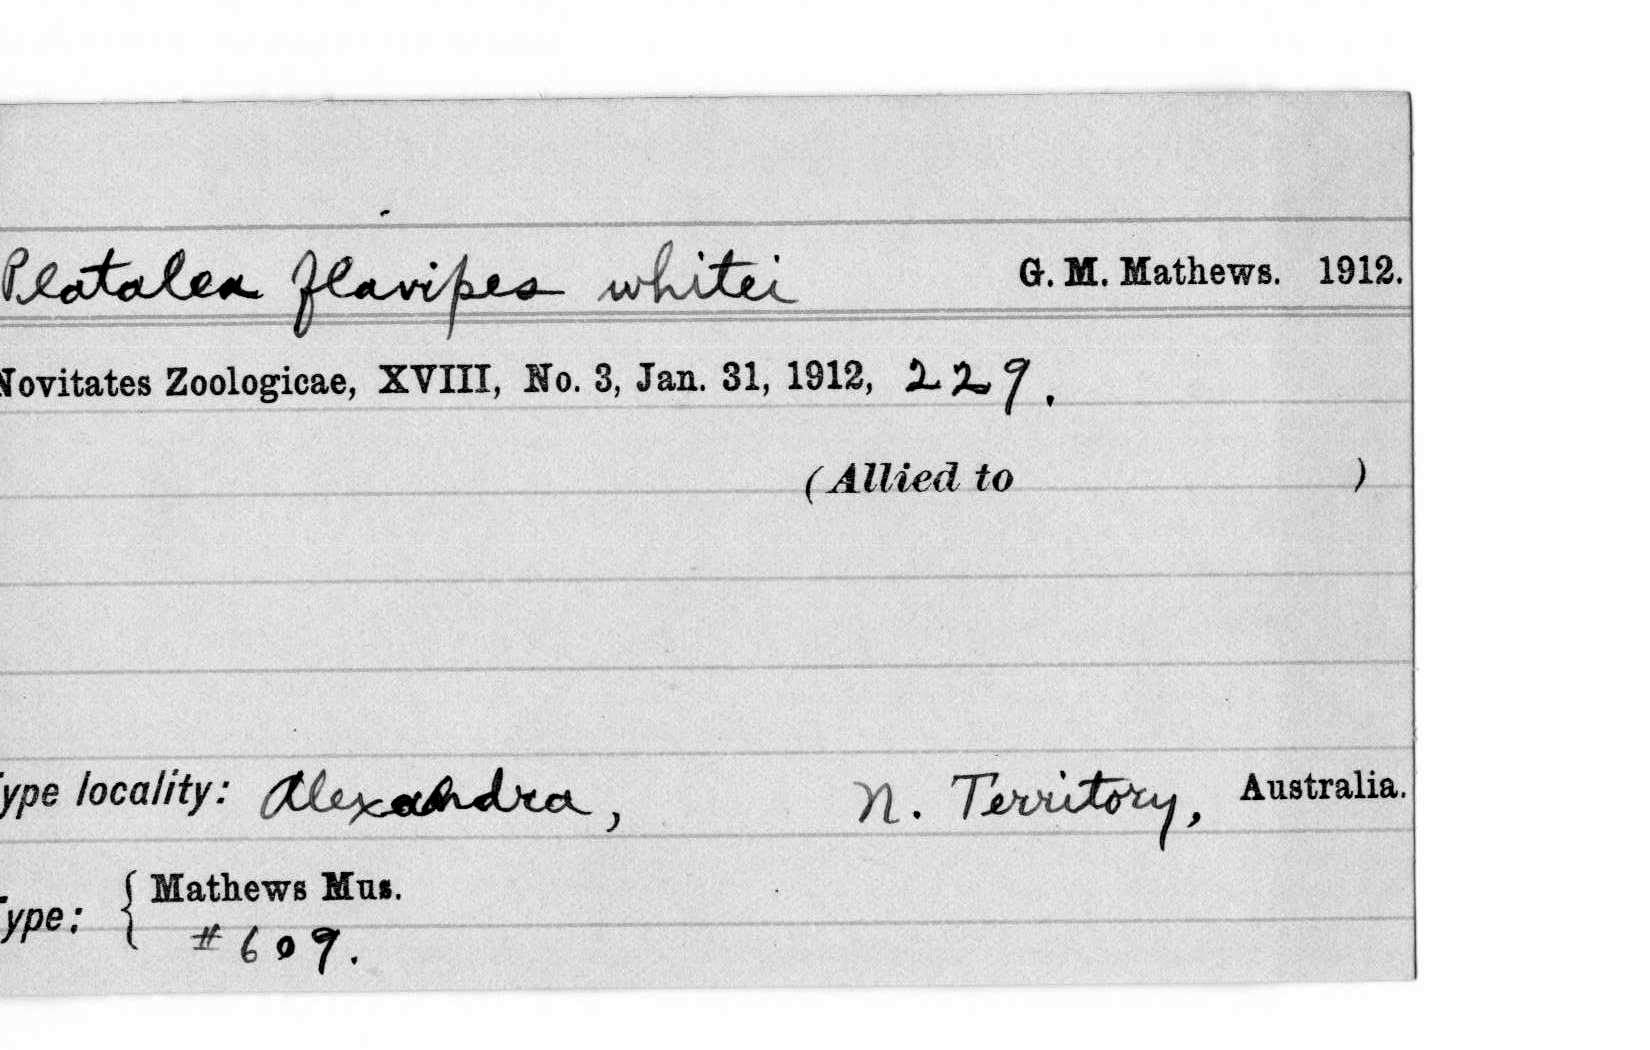 Platalea flavipes whitei G. M. Mathews. 1912.
Novitates Zoologicae, XVIII, No. 3, Jan. 31, 1912, 229.
(Allied to )
Type locality: Alexandra, N. Territory, Australia.
Type: { Mathews Mus.
# 609.